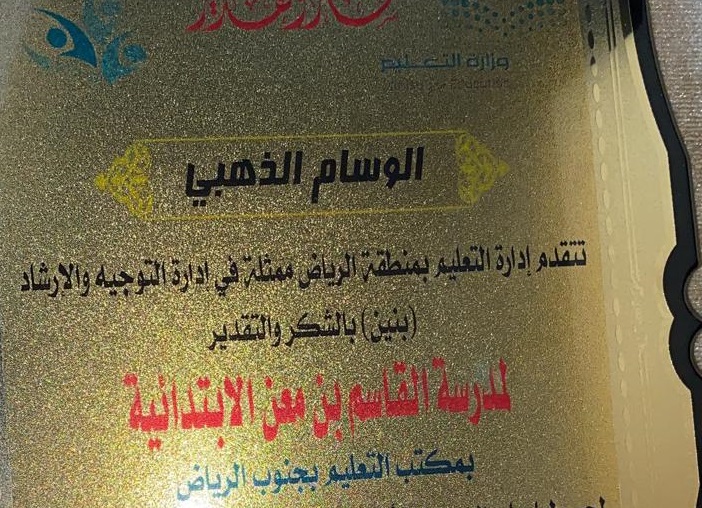 وزارة التعليم
الوسام الذهبي
تتقدم إدارة التعليم بمنطقة الرياض ممثلة في ادارة التوجيه والإرشاد
(بنين) بالشكر والتقدير
لمدرسة القاسم بن معن الابتدائية
بمكتب التعليم بجنوب الرياض